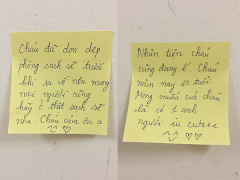 Cháu đã dọn dẹp
phòng sạch sẽ trước
khi ra về nên mong
mọi người cũng
hãy ở thật sạch sẽ
nha. Cháu cảm ơn ạ
^^ ♡♡
Nhân tiện cháu
cũng đang ế. Cháu
năm nay 20 tuổi.
Mong muốn của cháu
là có 1 anh
người iu cuteee
^^ ♡♡